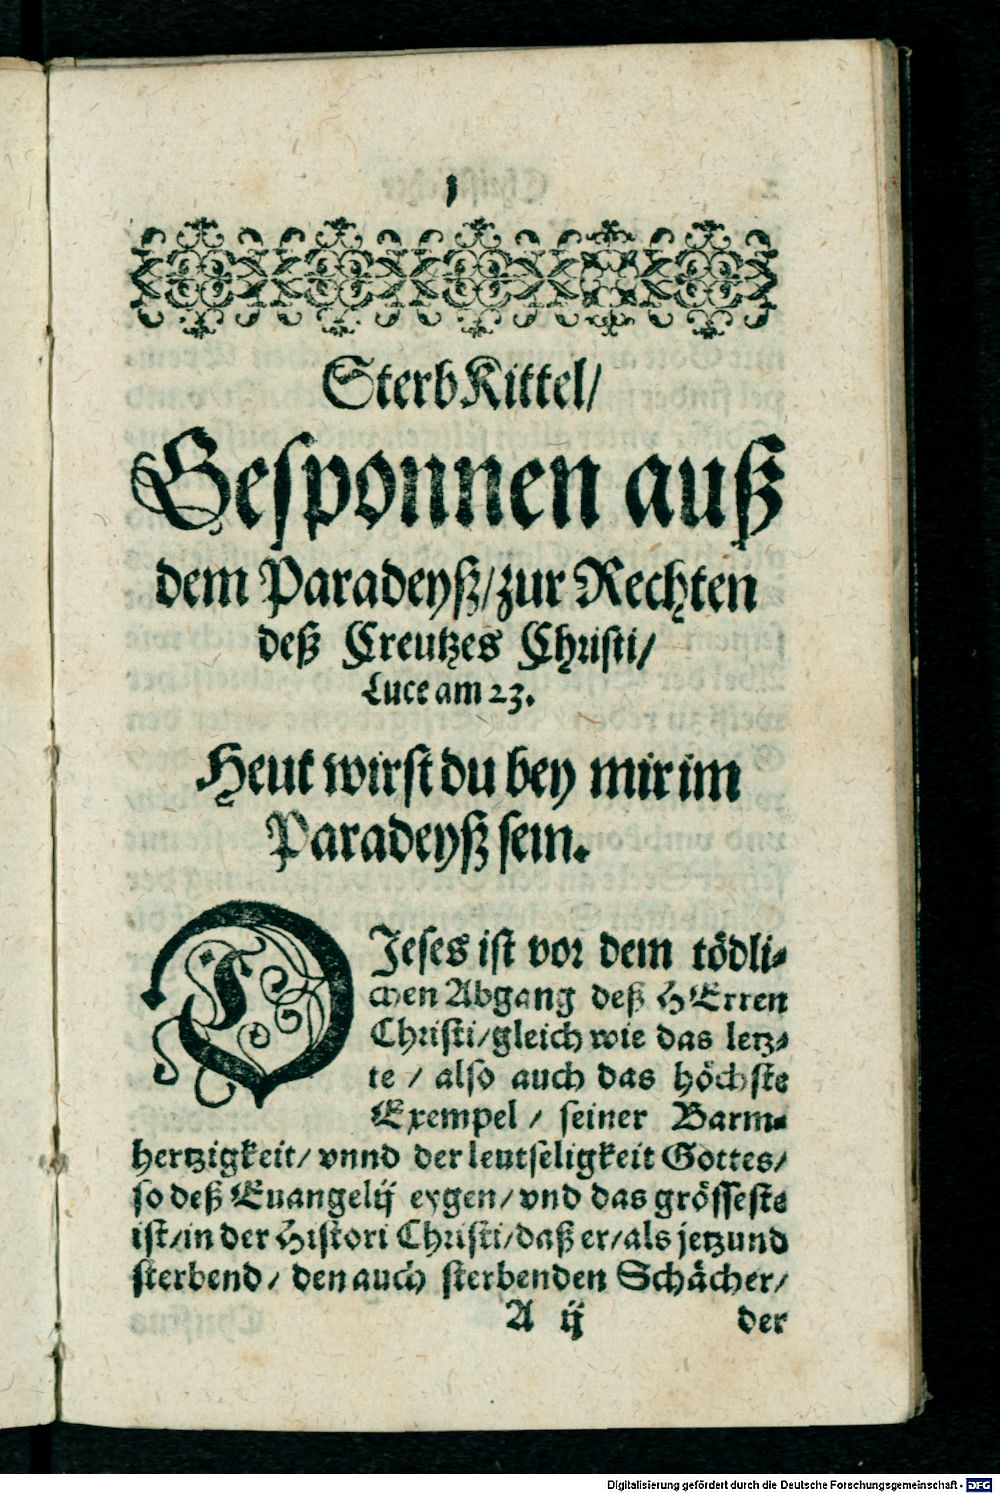 1
SterbKittel/
Gesponnen auß
dem Paradeyß/zur Rechten
deß Creutzes Christi/
Luce am 23.
Heut wirst du bey mir im
Paradeyß sein.
DJeses ist vor dem tödli-
chen Abgang deß HErren
Christi/gleich wie das letz-
te / also auch das höchste
Exempel / seiner Barm-
hertzigkeit/ vnnd der leutseligkeit Gottes/
so deß Euangelij eygen/ vnd das grösseste
ist/in der Histori Christi/daß er/als jetzund
sterbend/ den auch sterbenden Schächer/
A ij der
Digitalisierung gefördert durch die Deutsche Forschungsgemeinschaft - DFG